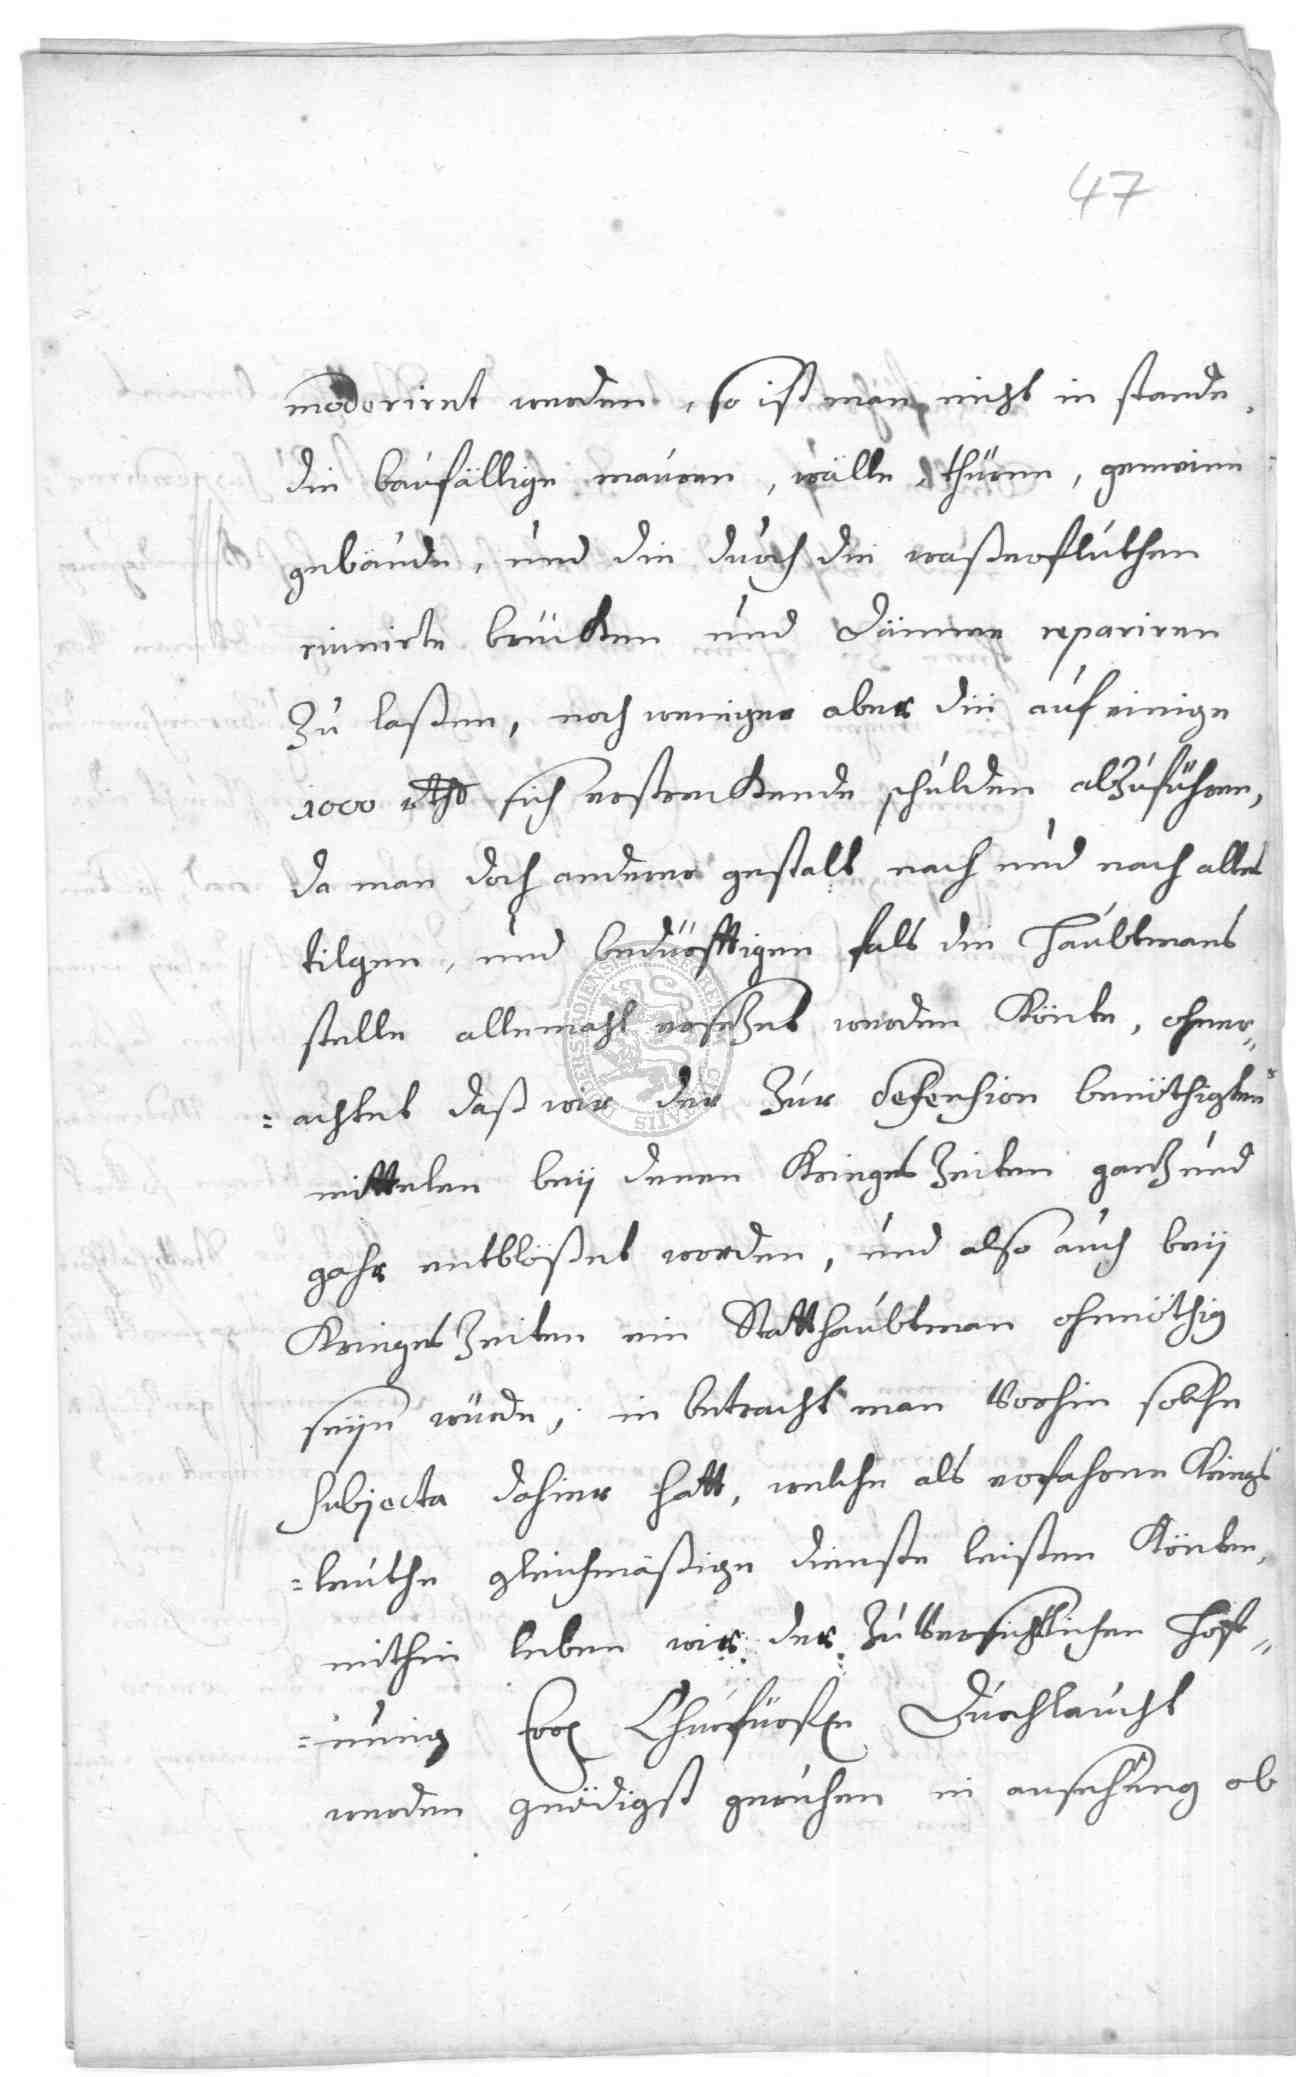 47
moderiret werden, so ist man nicht in stande
die baufällige mauren, wälle, thürne, gemeine
gebäude, und die durch die waßerfluthen
ruinirte brücken und dämme repariren
zu laßen, noch weniger aber die auf einige
1000 rthr sich erstreckende schulden abzuführen,
da man doch anderer gestalt nach und nach alles
tilgen, und bedürfftigen fals die Haubtmans
stelle allemahl ersetzet werden könte, ohner„
=achtet daß wir der zur defension benöthigten
mittelen beÿ denen Krieges Zeiten gantz und
gahr entblößet worden, und also auch beÿ
Krieges Zeiten ein Statthaubtman ohnnöthig
seÿn würde, in betracht man vorhin solche
subjecta dahier hatt, welche als erfahrne Kriegs
=leuthe gleichmäßige dienste leisten könten,
mithin leben wir der zuversichtlichen Hoff„
=nung Ewr Churfürstn Durchlaucht
werden gnädigst geruhen in ansehung ob